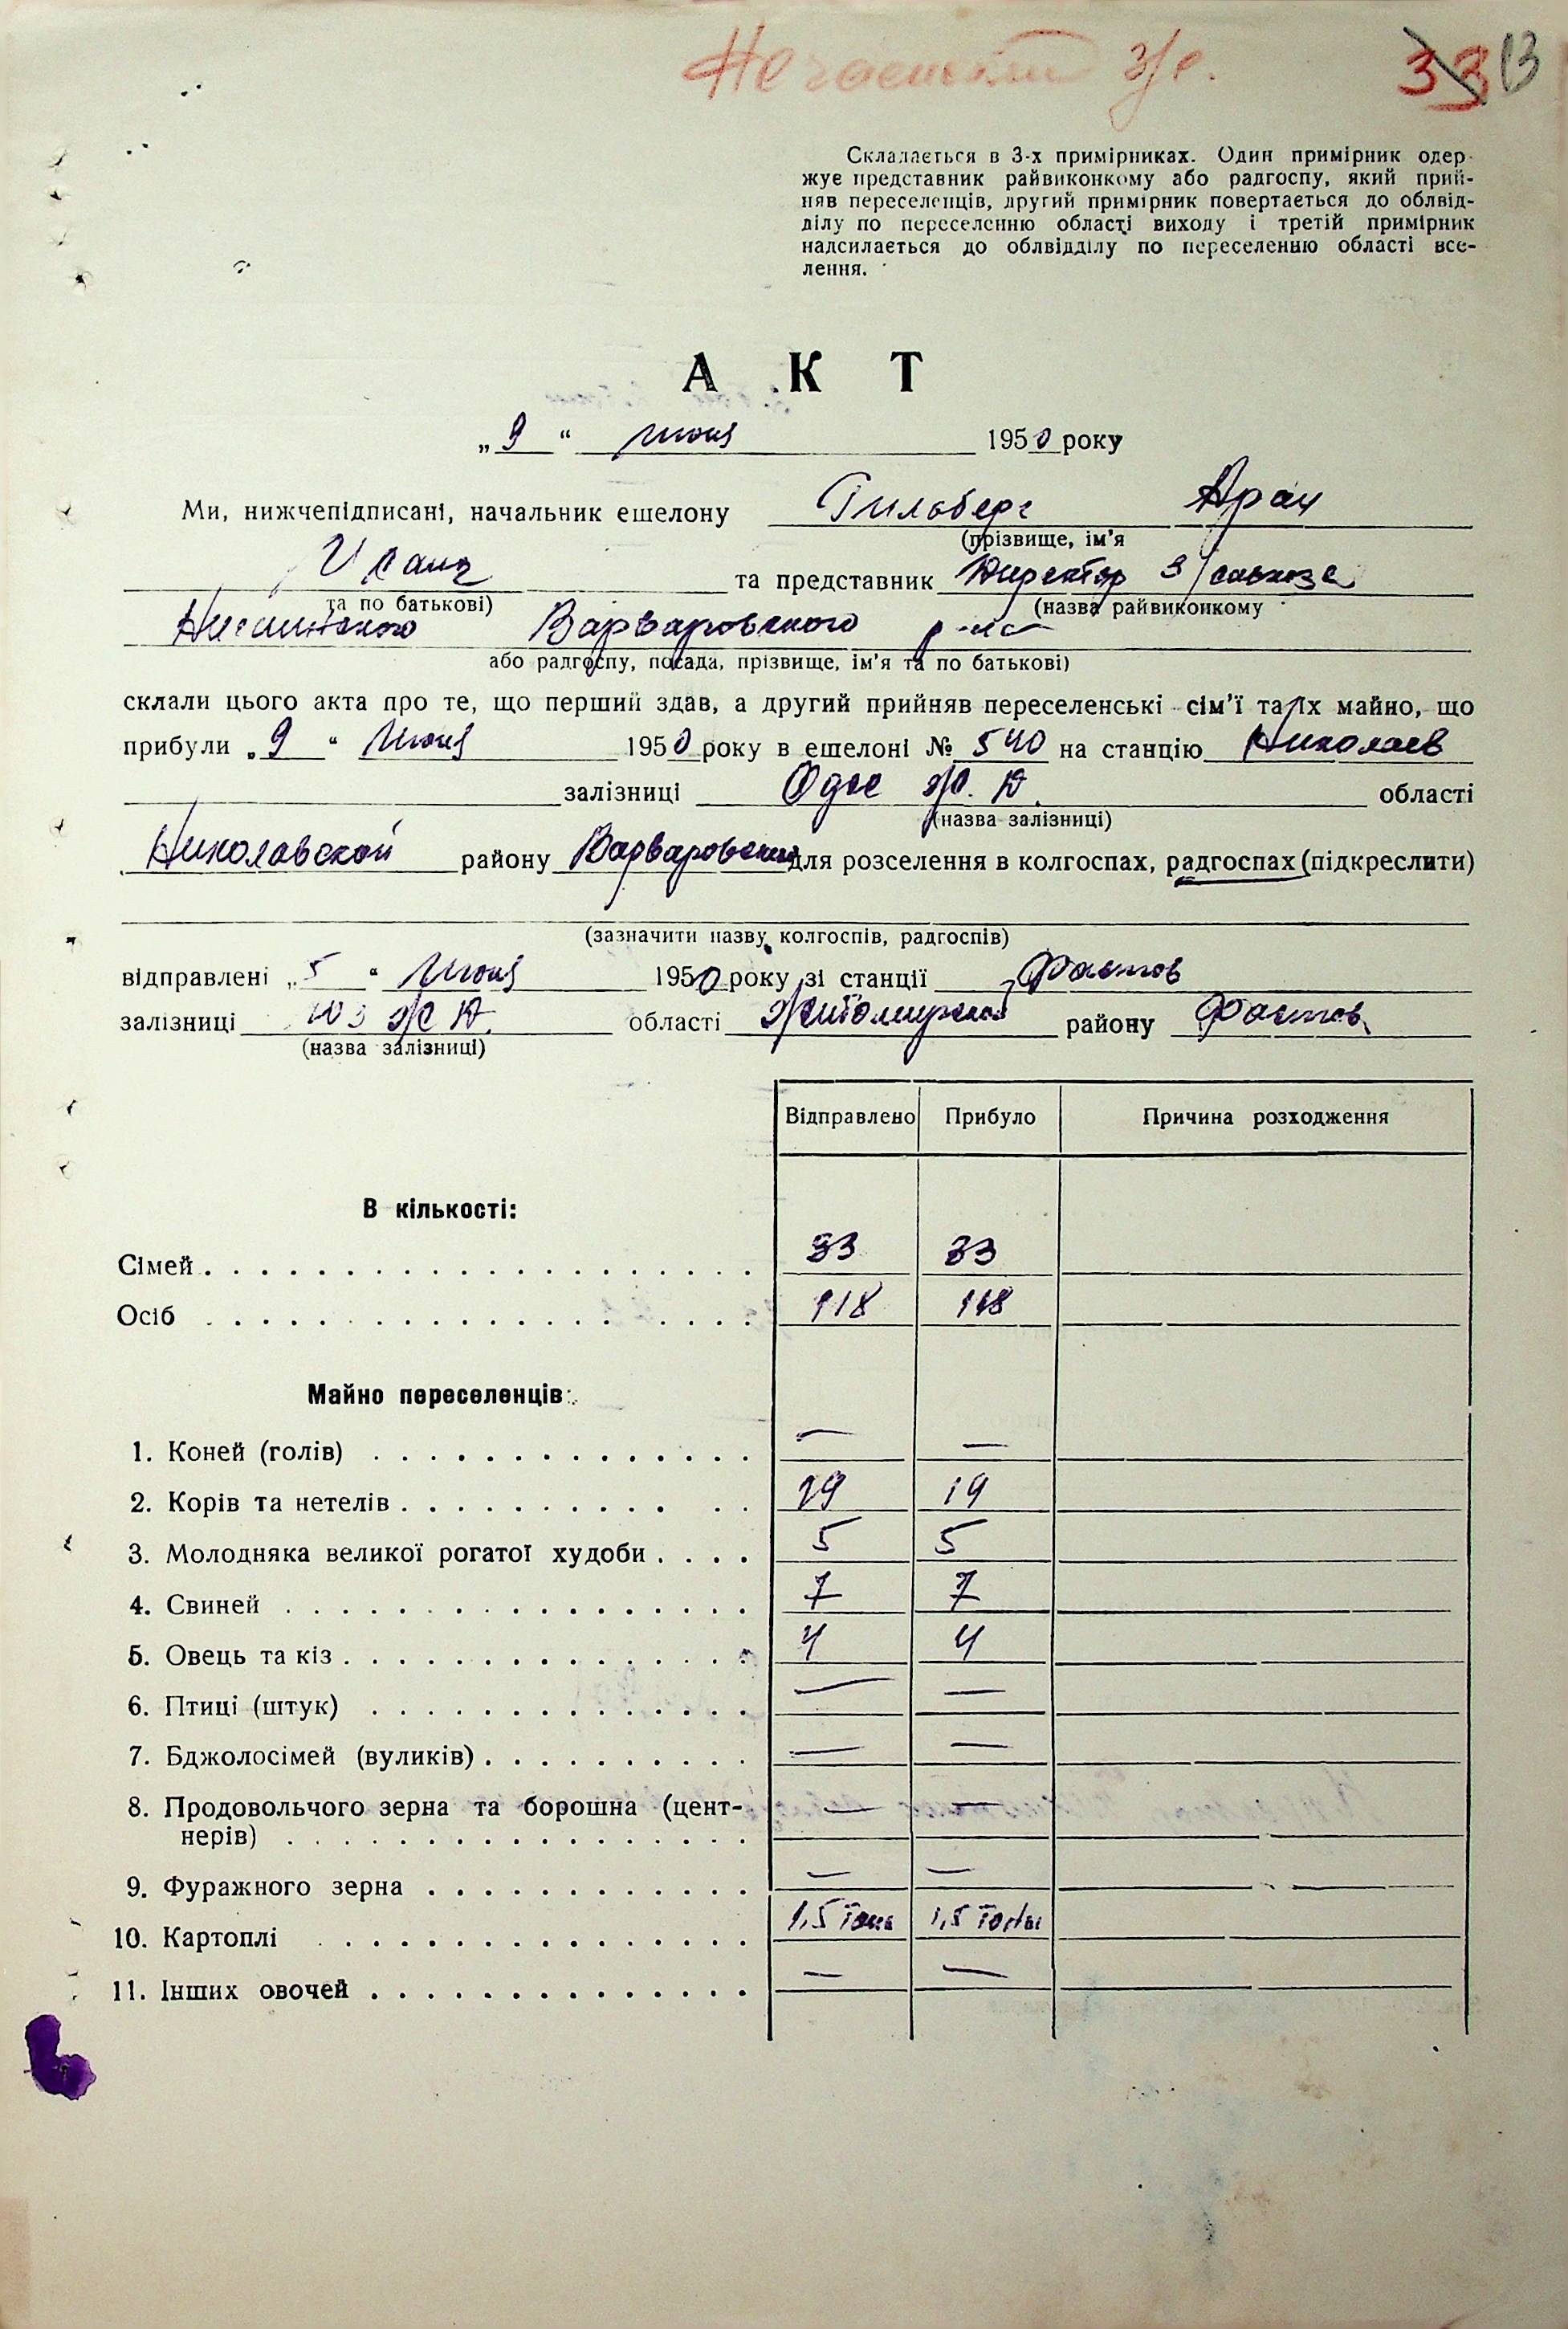 з/с. 33 13
Складається в 3-х примірниках. Один примірник одер-
жує представник райвиконкому або радгоспу, який прий-
няв переселенців, другий примірник повертається до облвід-
ділу по переселенню області виходу і третій примірник
надсилається до облвідділу по переселенню області все-
лення.
АКТ
„9“ июня 1950 року
Ми, нижчепідписані, начальник ешелону Гильберг
(прізвище, ім'я
та представник Директор з/совхоза
та по батькові) (назва райвиконкому
Варваровского
або радгоспу, посада, прізвище, ім'я та по батькові)
склали цього акта про те, що перший здав, а другий прийняв переселенські сім'ї та їх майно, що
прибули „9“ июня 1950 року в ешелоні № 540 на станцію Николаев
залізниці Одес ж. д. області
(назва залізниці)
Николавской району Варваровский для розселення в колгоспах, радгоспах (підкреслити)
(зазначити назву колгоспів, радгоспів)
відправлені „5“ июня 1950 року зі станції Фастов
залізниці ЮЗ ж д. області Житомирской району Фастов
(назва залізниці)
Відправлено Прибуло Причина розходження
В кількості:
Сімей 33 33
Осіб 118 118
Майно переселенців:
1. Коней (голів) — —
2. Корів та нетелів 19 19
3. Молодняка великої рогатої худоби 5 5
4. Свиней 7 7
5. Овець та кіз 4 4
6. Птиці (штук) — —
7. Бджолосімей (вуликів) — —
8. Продовольчого зерна та борошна (цент- — —
нерів)
9. Фуражного зерна — —
10. Картоплі 1,5 тонн 1,5 тонны
11. Інших овочей — —